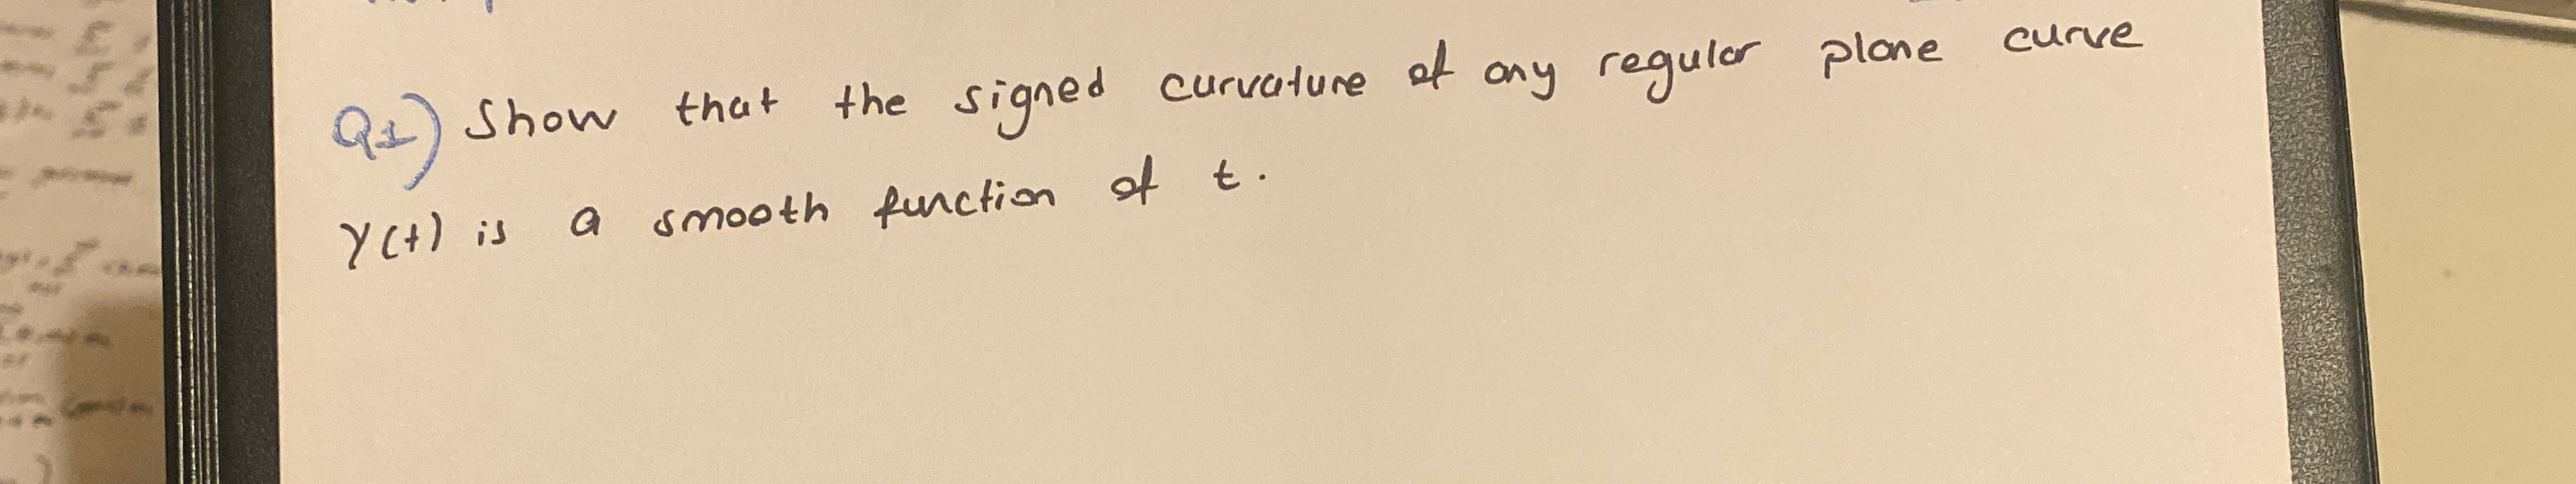 Q1) Show that the signed curvature of any regular plane curve
γ(t) is a smooth function of t.